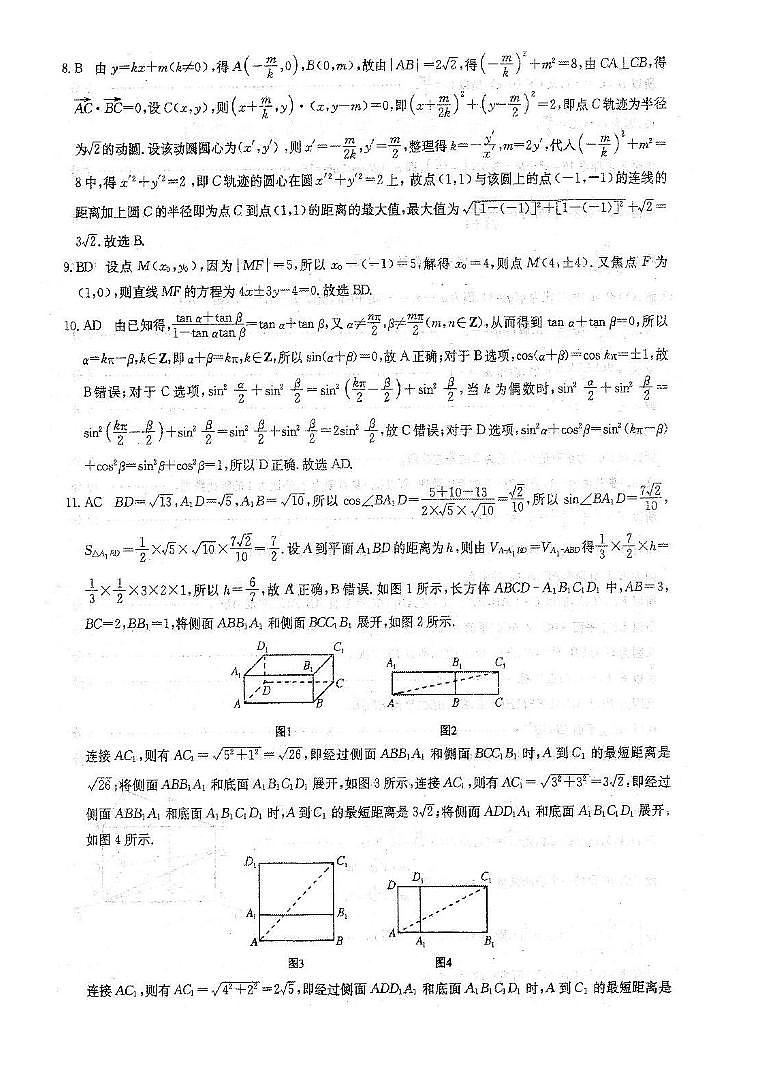 8. B 由 y=kx+m(k≠0),得 A(-m/k,0),B(0,m),故由|AB|=2√2,得(-m/k)²+m²=8,由 CA⊥CB,得
AC·BC=0,设 C(x,y),则(x+m/k,y)·(x,y-m)=0,即(x+m/2k)²+(y-m/2)²=2,即点 C 轨迹为半径
为√2的动圆.设该动圆圆心为(x′,y′),则 x′=-m/2k,y′=m/2,整理得 k=-y′/x′,m=2y′,代入(-m/k)²+m²=
8中,得 x′²+y′²=2,即 C 轨迹的圆心在圆 x′²+y′²=2 上,故点(1,1)与该圆上的点(-1,-1)的连线的
距离加上圆 C 的半径即为点 C 到点(1,1)的距离的最大值,最大值为√([1-(-1)]²+[1-(-1)]²)+√2=
3√2.故选 B.
9. BD 设点 M(x₀,y₀),因为|MF|=5,所以 x₀-(-1)=5,解得 x₀=4,则点 M(4,±4).又焦点 F 为
(1,0),则直线 MF 的方程为 4x±3y-4=0.故选 BD.
10. AD 由已知得,(tan α+tan β)/(1-tan αtan β)=tan α+tan β,又 α≠nπ/2,β≠mπ/2(m,n∈Z),从而得到 tan α+tan β=0,所以
α=kπ-β,k∈Z,即 α+β=kπ,k∈Z,所以 sin(α+β)=0,故 A 正确;对于 B 选项,cos(α+β)=cos kπ=±1,故
B 错误;对于 C 选项,sin² α/2+sin² β/2=sin²(kπ/2-β/2)+sin² β/2,当 k 为偶数时,sin² α/2+sin² β/2=
sin²(kπ/2-β/2)+sin² β/2=sin² β/2+sin² β/2=2sin² β/2,故 C 错误;对于 D 选项,sin²α+cos²β=sin²(kπ-β)
+cos²β=sin²β+cos²β=1,所以 D 正确.故选 AD.
11. AC BD=√13,A₁D=√5,A₁B=√10,所以 cos∠BA₁D=(5+10-13)/(2×√5×√10)=√2/10,所以 sin∠BA₁D=7√2/10,
S△A₁BD=1/2×√5×√10×7√2/10=7/2.设 A 到平面 A₁BD 的距离为 h,则由 V_A-A₁BD=V_A₁-ABD得1/3×7/2×h=
1/3×1/2×3×2×1,所以 h=6/7,故 A 正确,B 错误.如图 1 所示,长方体 ABCD-A₁B₁C₁D₁ 中,AB=3,
BC=2,BB₁=1,将侧面 ABB₁A₁ 和侧面 BCC₁B₁ 展开,如图 2 所示.
D₁ C₁
A₁ B₁
D C
A B
图1
A₁ B₁ C₁
A B C
图2
连接 AC₁,则有 AC₁=√(5²+1²)=√26,即经过侧面 ABB₁A₁ 和侧面 BCC₁B₁ 时,A 到 C₁ 的最短距离是
√26;将侧面 ABB₁A₁ 和底面 A₁B₁C₁D₁ 展开,如图 3 所示,连接 AC₁,则有 AC₁=√(3²+3²)=3√2,即经过
侧面 ABB₁A₁ 和底面 A₁B₁C₁D₁ 时,A 到 C₁ 的最短距离是 3√2;将侧面 ADD₁A₁ 和底面 A₁B₁C₁D₁ 展开,
如图 4 所示.
D₁ C₁
A₁ B₁
A B
图3
D D₁ C₁
A A₁ B₁
图4
连接 AC₁,则有 AC₁=√(4²+2²)=2√5,即经过侧面 ADD₁A₁ 和底面 A₁B₁C₁D₁ 时,A 到 C₁ 的最短距离是